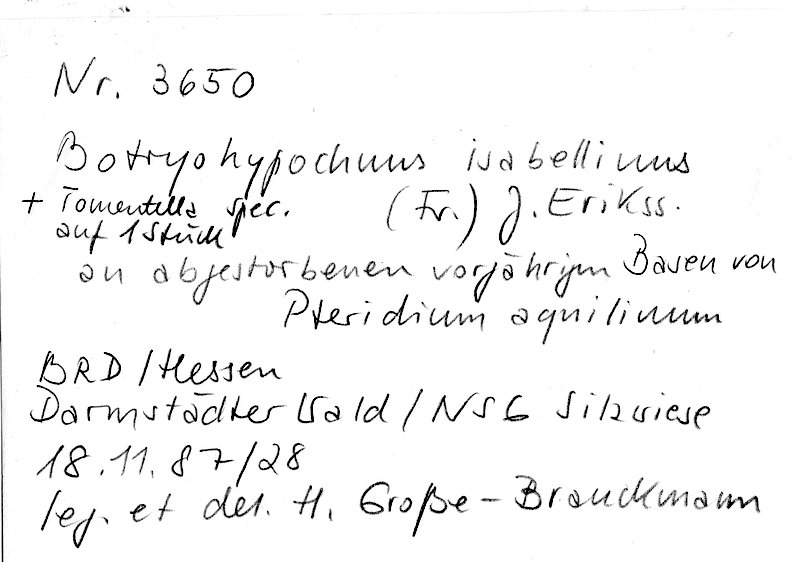 Nr. 3650
Botryohypochnus isabellinus
+ Tomentella spec. (Fr.) J. Erikss.
auf 1 Stück
an abgestorbenen vorjährigen Basen von
Pteridium aquilinum
BRD / Hessen
Darmstädter Wald / NSG Silzwiese
18.11.87/28
leg. et det. H. Große-Brauckmann